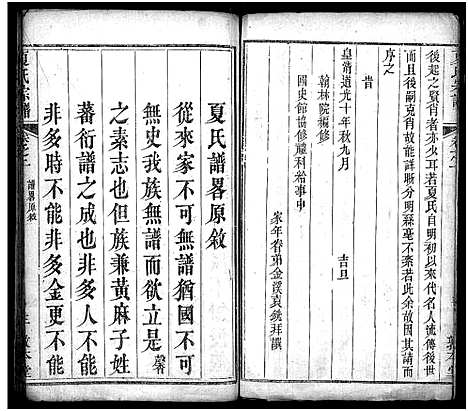 後起之賢肖者亦火耳若夏氏自明初以來代有傳人後世
而且後嗣克肖故能詳分明絲毫不紊若此余故因而
序之
皇清道光十年秋九月 吉旦
翰林院編修
國史館協修
家年眷弟金溪袁 拜撰
夏氏譜畧原敘
從來家不可無譜猶國不可
無史我無譜而欲立是
之素志也但族兼黃麻子姓
蕃衍譜之成也不能
非多時不能非多金更不能
夏氏宗譜
譜畧原敘
敦本堂